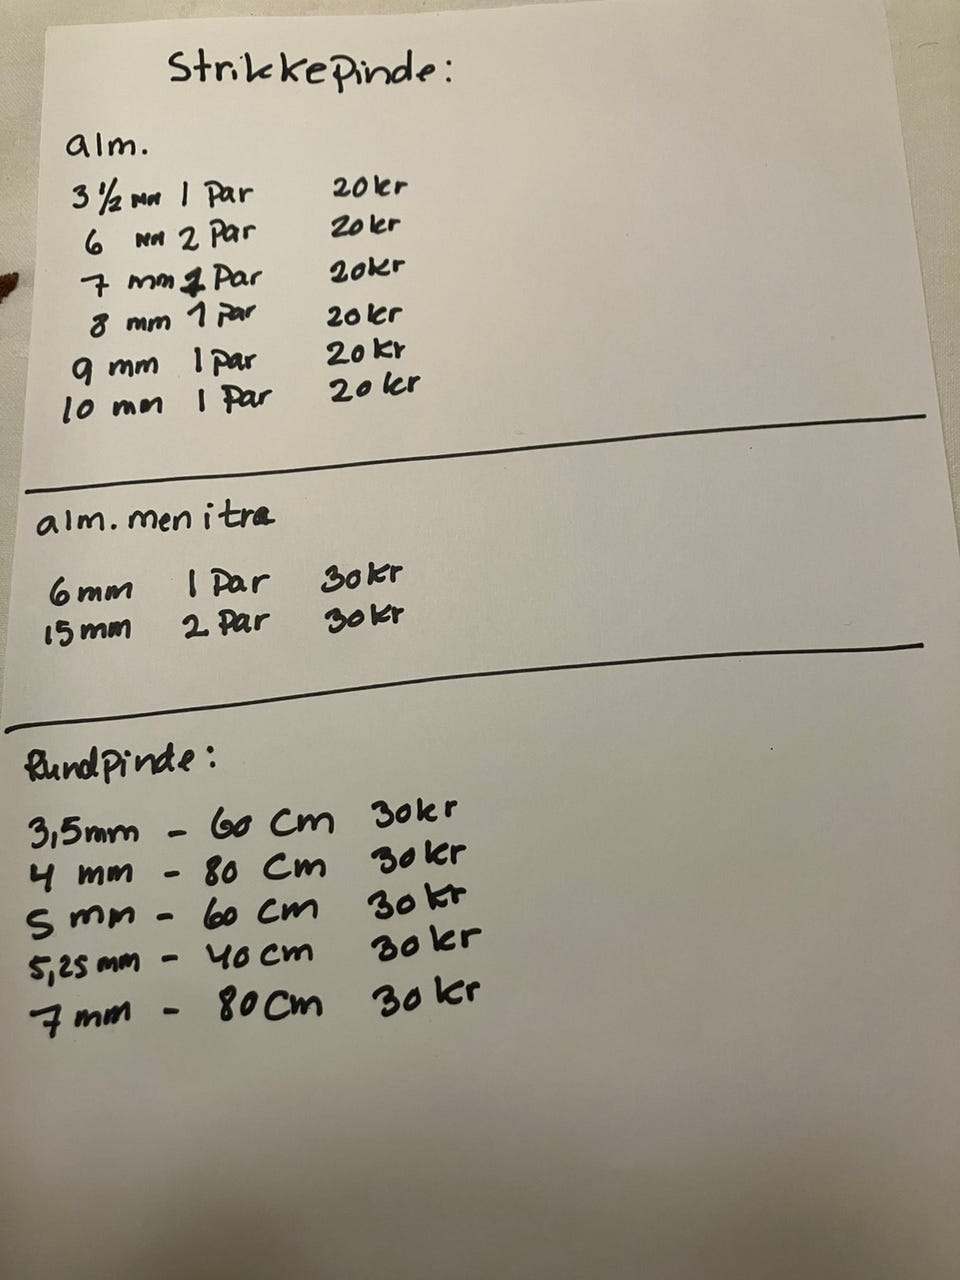 Strikkepinde:
alm.
3 ½ mm 1 Par 20kr
6 mm 2 Par 20kr
7 mm Par 20kr
8 mm 1 Par 20kr
9 mm 1 Par 20 kr
10 mm 1 Par 20 kr
alm. men i træ
6mm 1 Par 30kr
15mm 2 Par 30kr
Rundpinde:
3,5mm - 60 Cm 30kr
4 mm - 80 Cm 30kr
5 mm - 60 cm 30kr
5,25mm - 40 cm 30 kr
7 mm - 80 Cm 30 kr